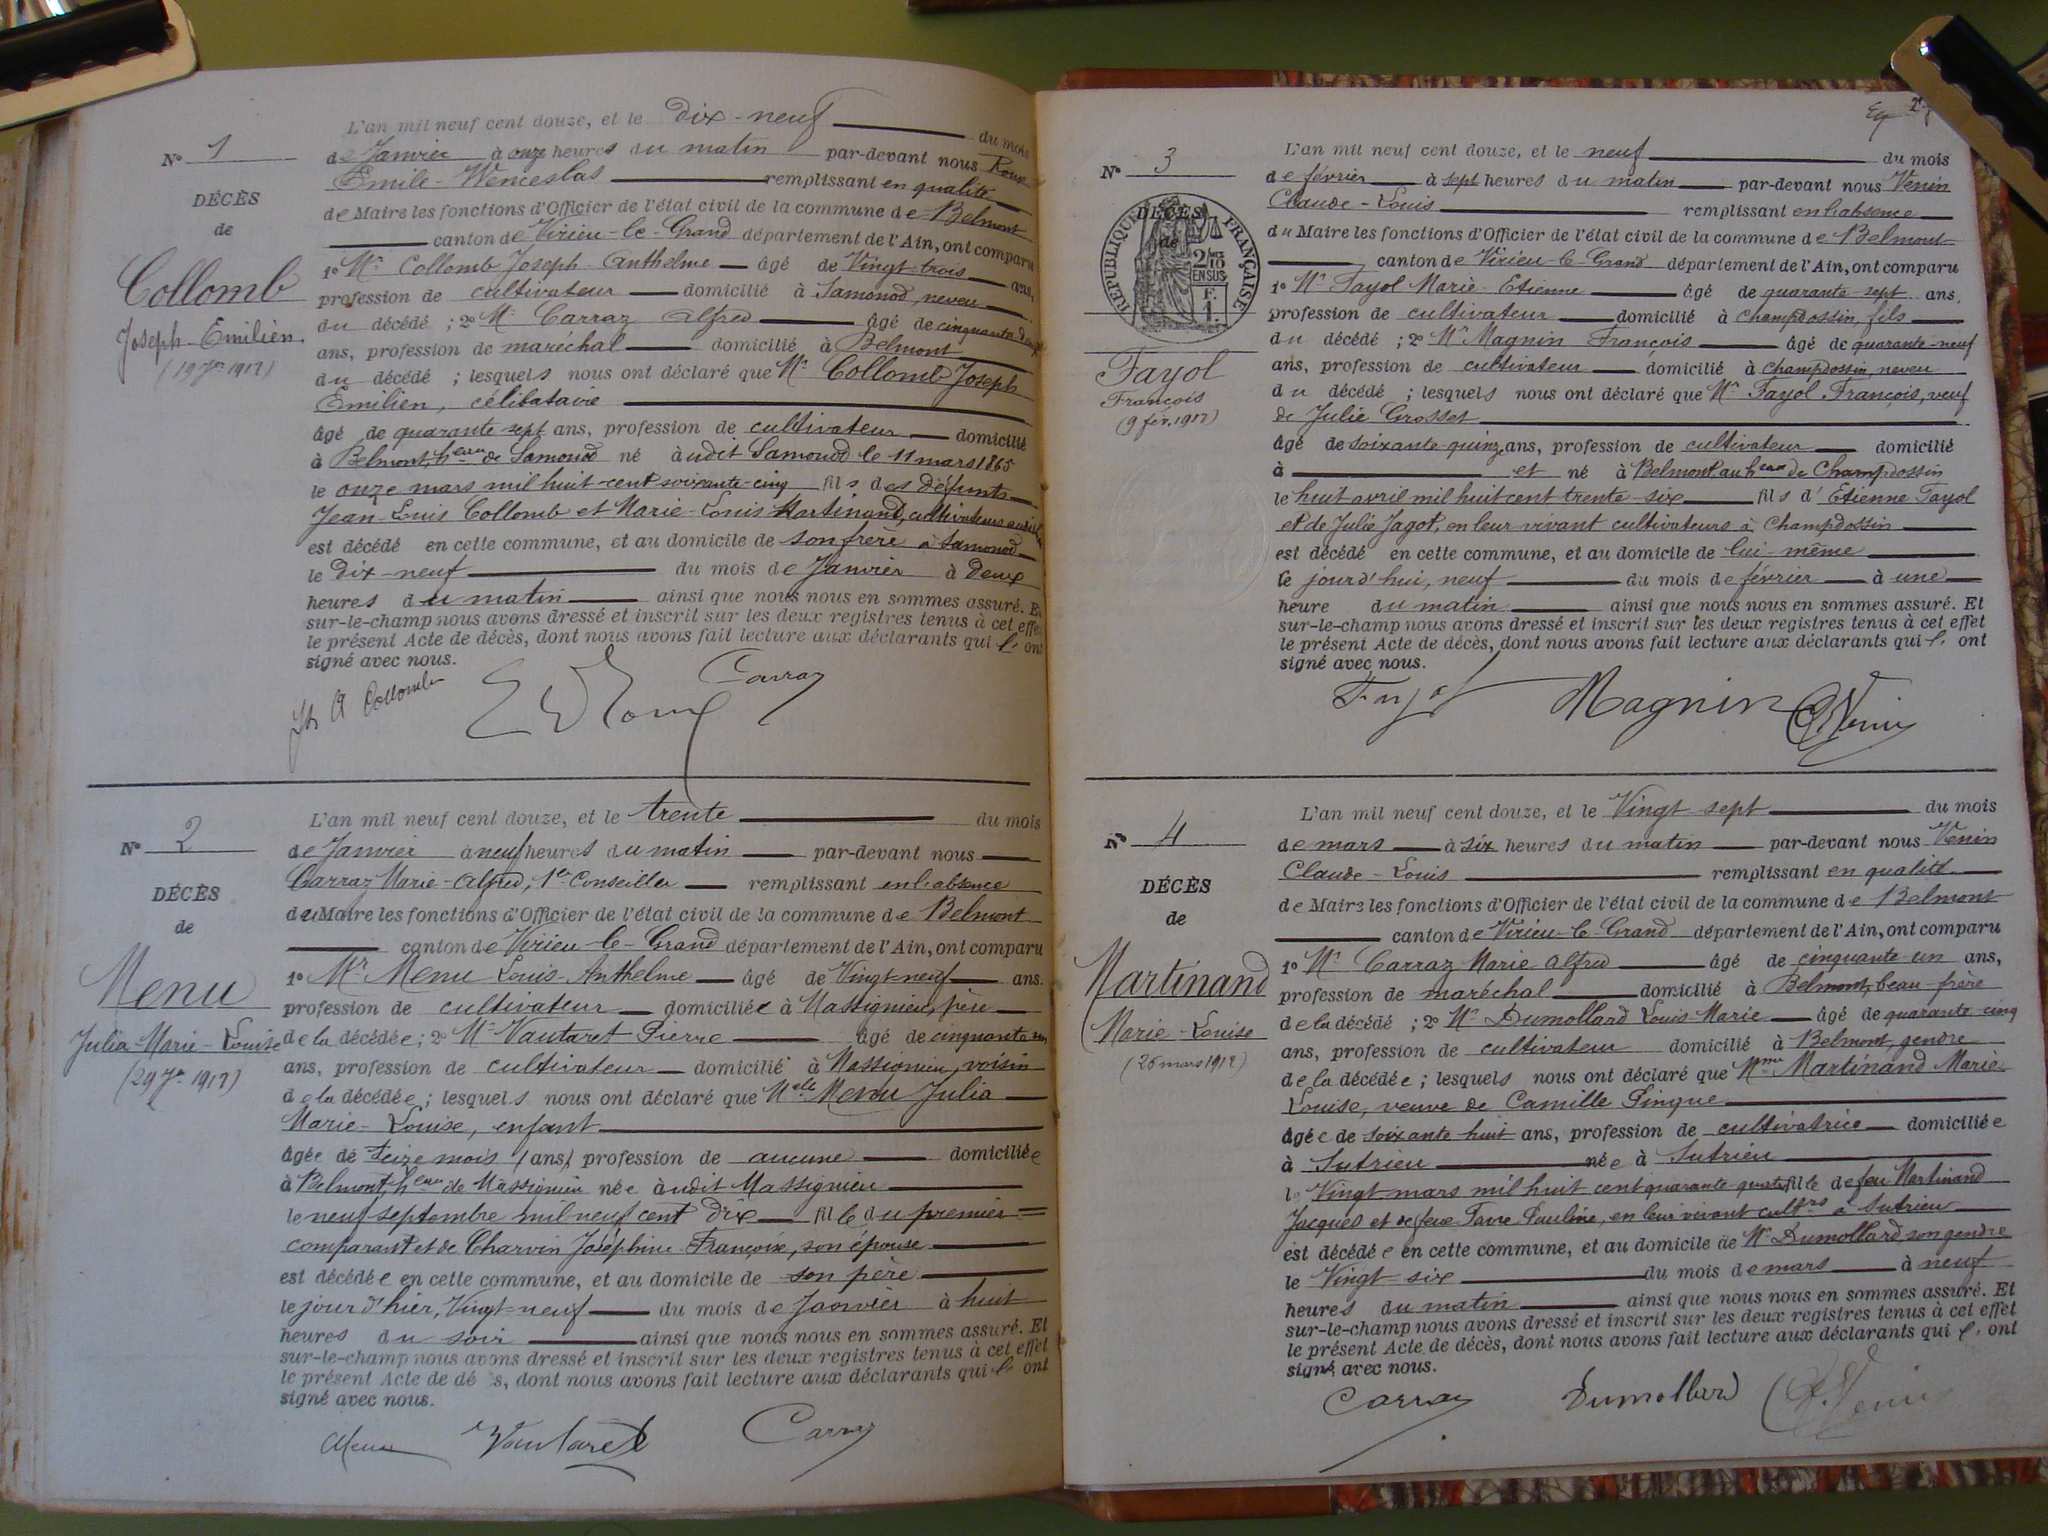 N° 1
DÉCÈS
de
Collomb
Joseph-Emilien.
(19 Jer 1912)
L'an mil neuf cent douze, et le dix-neuf du mois
de Janvier à onze heures du matin par-devant nous Roux
Emile-Wenceslas remplissant en qualité
de Maire les fonctions d'Officier de l'état civil de la commune de Belmont
canton de Virieu-le-Grand département de l'Ain, ont comparu
1° Mr Collomb Joseph-Anthelme âgé de Vingt-trois ans,
profession de cultivateur domicilié à Samonod, neveu
du décédé ; 2° Mr Carraz Alfred âgé de cinquante
ans, profession de maréchal domicilié à Belmont
du décédé ; lesquels nous ont déclaré que Mr Collomb Joseph
Emilien, célibataire
âgé de quarante-sept ans, profession de cultivateur domicilié
à Belmont, heau de Samonod né à udit Samonod le 11 mars 1865
le onze mars mil huit-cent soixante-cinq fils des défunts
Jean-Louis Collomb et Marie-Louis Martinand, cultivateurs
est décédé en cette commune, et au domicile de son frère à Samonod
le dix-neuf du mois de Janvier à deux
heures du matin ainsi que nous nous en sommes assuré. Et
sur-le-champ nous avons dressé et inscrit sur les deux registres tenus à cet effet
le présent Acte de décès, dont nous avons fait lecture aux déclarants qui l' ont
signé avec nous.
Jh A Collomb
E W Roux
Carraz
N° 2
DÉCÈS
de
Menu
Julia-Marie-Louise
(29 Jer 1912)
L'an mil neuf cent douze, et le trente du mois
de Janvier à neuf heures du matin par-devant nous
Carraz Marie-Alfred, 1er Conseiller remplissant en l'absence
du Maire les fonctions d'Officier de l'état civil de la commune de Belmont
canton de Virieu-le-Grand département de l'Ain, ont comparu
1° Mr Menu Louis-Anthelme âgé de Vingt-neuf ans.
profession de cultivateur domicilié à Massignieu, père
de la décédée ; 2° Mr Vautaret Pierre âgé de cinquante
ans, profession de cultivateur domicilié à Massignieu, voisin
de la décédée ; lesquels nous ont déclaré que Melle Menu Julia
Marie-Louise, enfant
âgée de seize mois (ans) profession de aucune domiciliée
à Belmont, heau de Massignieu née à udit Massignieu
le neuf septembre mil neuf cent dix fille du premier
comparant et de Charvin Joséphine-Françoise, son épouse
est décédée en cette commune, et au domicile de son père
le jour d'hier, Vingt-neuf du mois de Janvier à huit
heures du soir ainsi que nous nous en sommes assuré. Et
sur-le-champ nous avons dressé et inscrit sur les deux registres tenus à cet effet
le présent Acte de dé s, dont nous avons fait lecture aux déclarants qui l' ont
signé avec nous.
Menu
Vautaret
Carraz
N° 3
DÉCÈS
de
RÉPUBLIQUE FRANÇAISE
2/10 EN SUS
F. 1.
Fayol
François
(9 fév. 1912)
L'an mil neuf cent douze, et le neuf du mois
de février à sept heures du matin par-devant nous Venin
Claude-Louis remplissant en l'absence
du Maire les fonctions d'Officier de l'état civil de la commune de Belmont
canton de Virieu-le-Grand département de l'Ain, ont comparu
1° Mr Fayol Marie-Etienne âgé de quarante-sept ans,
profession de cultivateur domicilié à Champdossin, fils
du décédé ; 2° Mr Magnin François âgé de quarante-neuf
ans, profession de cultivateur domicilié à Champdossin, neveu
du décédé ; lesquels nous ont déclaré que Mr Fayol François, veuf
de Julie Grosset
âgé de soixante-quinze ans, profession de cultivateur domicilié
à et né à Belmont au heau de Champdossin
le huit avril mil huit cent trente-six fils d' Etienne Fayol
et de Julie Jagot, en leur vivant cultivateurs à Champdossin
est décédé en cette commune, et au domicile de lui-même
le jourd'hui, neuf du mois de février à une
heure du matin ainsi que nous nous en sommes assuré. Et
sur-le-champ nous avons dressé et inscrit sur les deux registres tenus à cet effet
le présent Acte de décès, dont nous avons fait lecture aux déclarants qui l' ont
signé avec nous.
Fayol
Magnin
Venin
N° 4
DÉCÈS
de
Martinand
Marie-Louise
(26 mars 1912)
L'an mil neuf cent douze, et le Vingt-sept du mois
de mars à six heures du matin par-devant nous Venin
Claude-Louis remplissant en qualité
de Maire les fonctions d'Officier de l'état civil de la commune de Belmont
canton de Virieu-le-Grand département de l'Ain, ont comparu
1° Mr Carraz Marie Alfred âgé de cinquante-un ans,
profession de maréchal domicilié à Belmont, beau-frère
de la décédé ; 2° Mr Dumollard Louis Marie âgé de quarante-cinq
ans, profession de cultivateur domicilié à Belmont, gendre
de la décédée ; lesquels nous ont déclaré que Mme Martinand Marie
Louise, veuve de Camille Pingue
âgée de soixante huit ans, profession de cultivatrice domiciliée
à Sutrieu née à Sutrieu
le Vingt mars mil huit cent quarante-quatre fille de feu Martinand
Jacques et de feue Favre Pauline, en leur vivant cultrs à Sutrieu
est décédée en cette commune, et au domicile de Mr Dumollard son gendre
le Vingt-six du mois de mars à neuf
heures du matin ainsi que nous nous en sommes assuré. Et
sur-le-champ nous avons dressé et inscrit sur les deux registres tenus à cet effet
le présent Acte de décès, dont nous avons fait lecture aux déclarants qui l' ont
signé avec nous.
Carraz
Dumollard
Venin